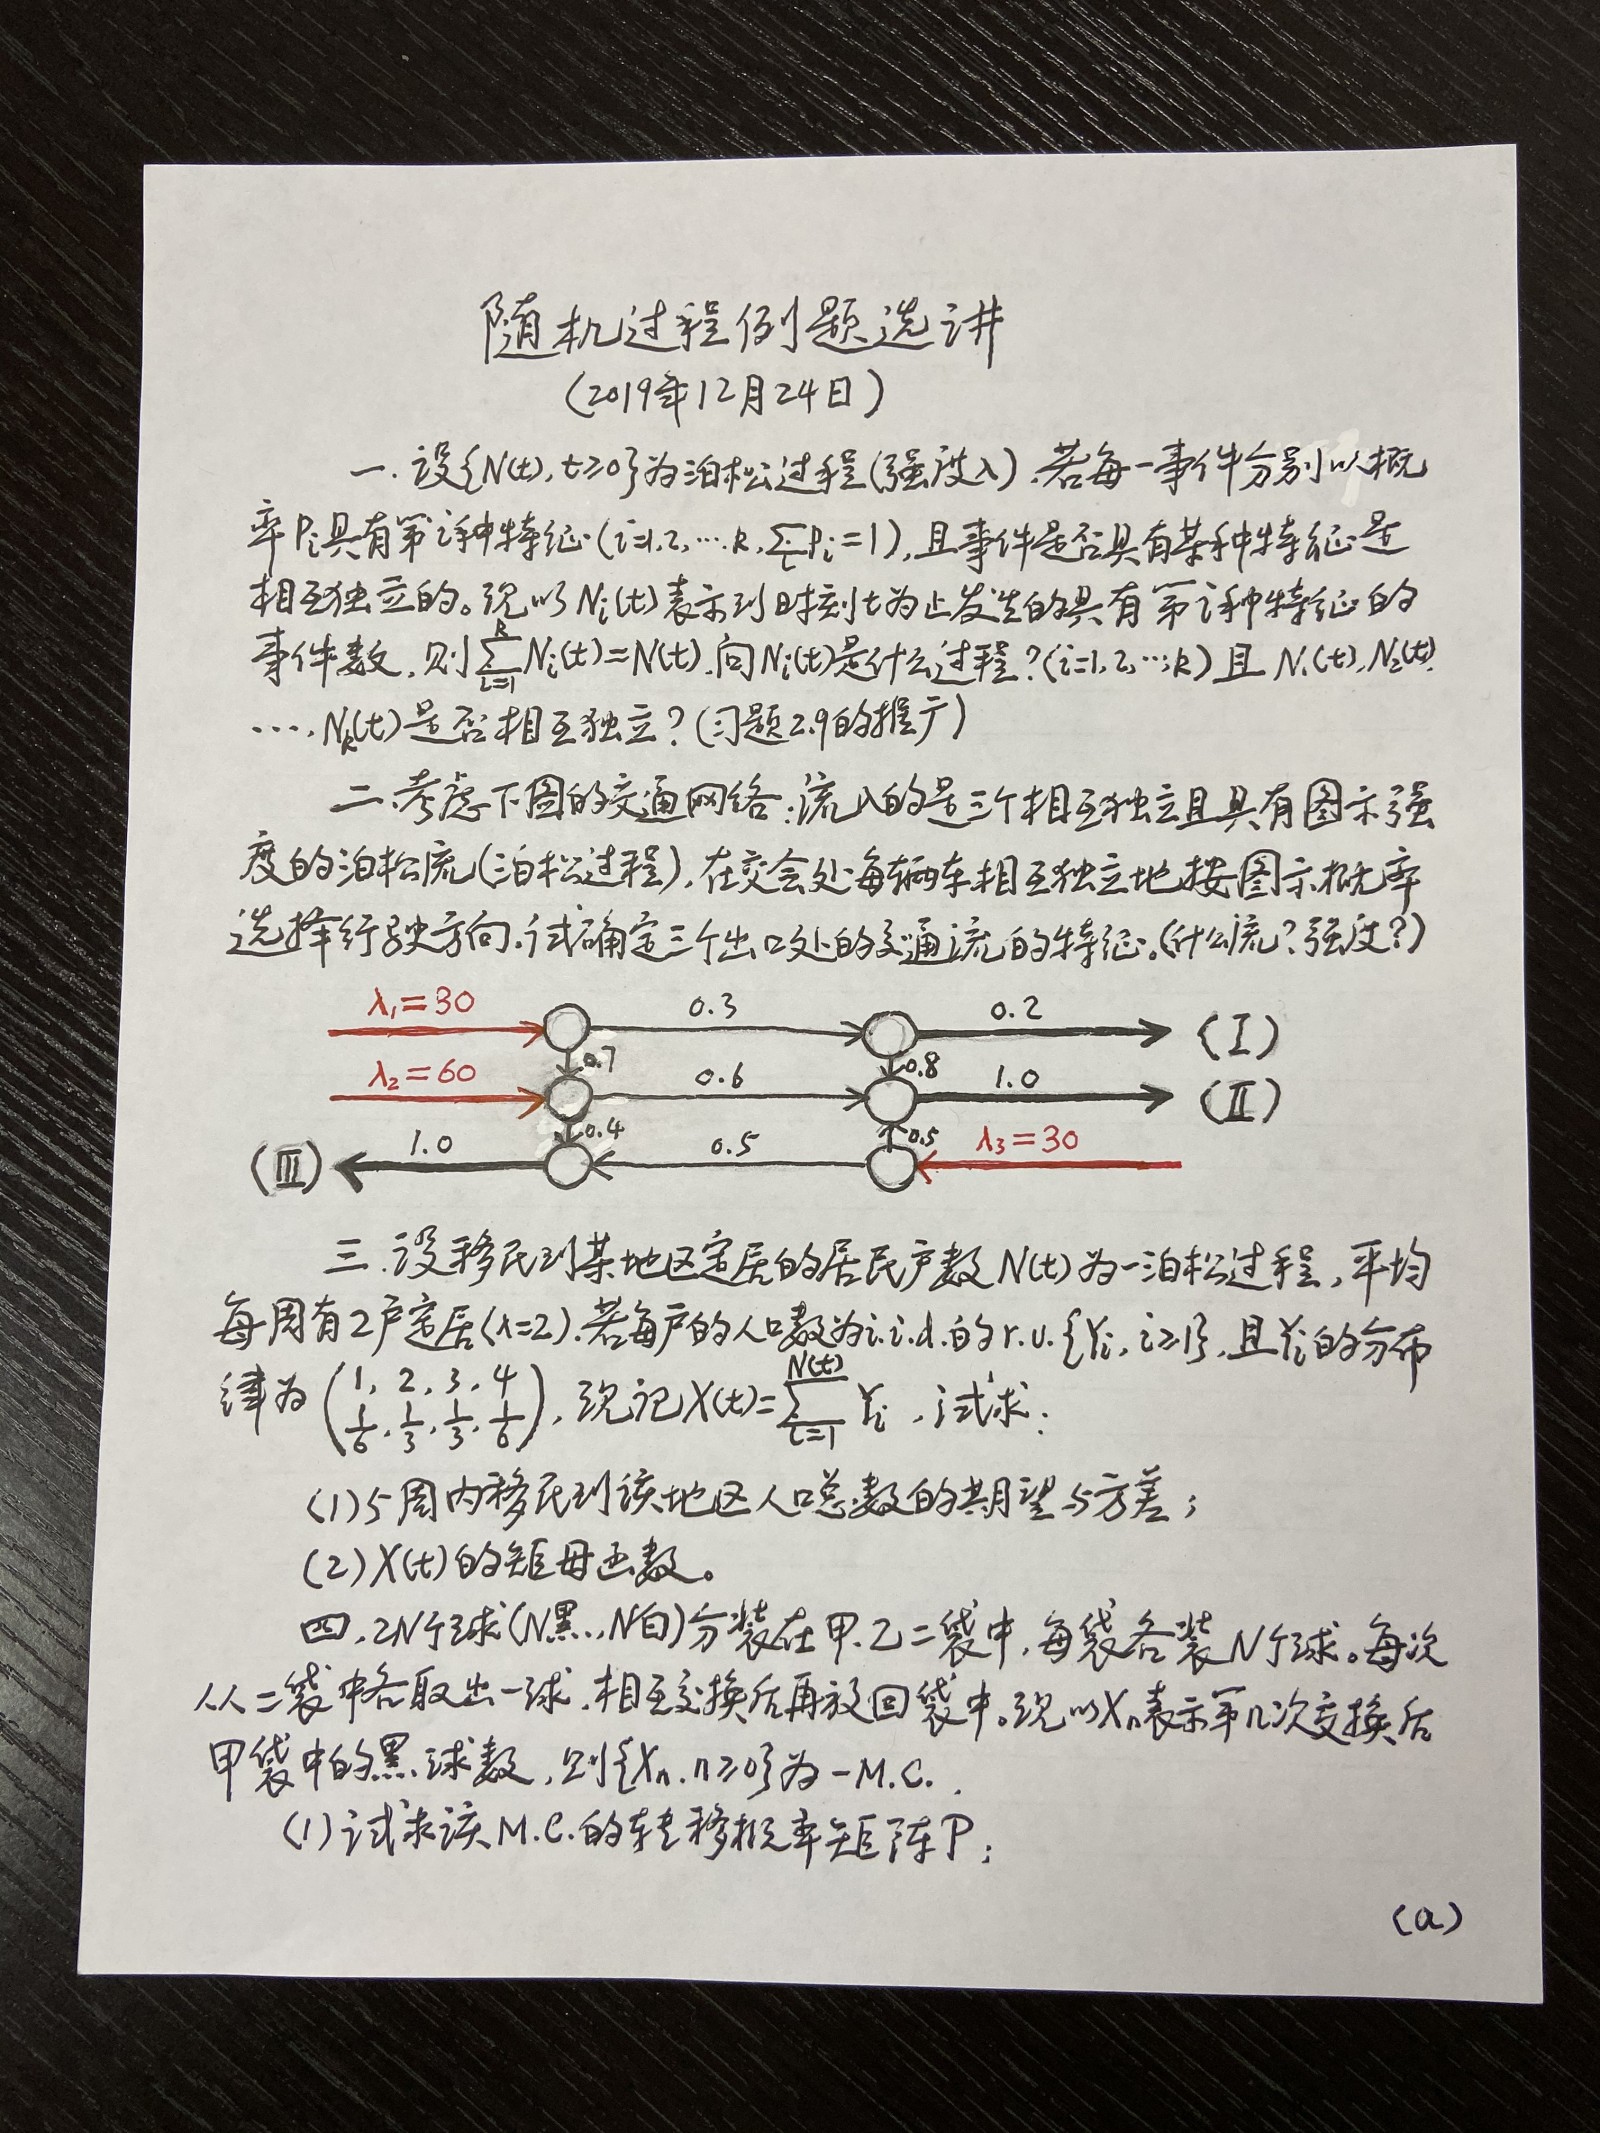 随机过程例题选讲
(2019年12月24日)
一.设{N(t),t≥0}为泊松过程(强度λ).若每一事件分别以概
率Pi具有第i种特征(i=1,2,…k,∑Pi=1),且事件是否具有某种特征是
相互独立的。现以Ni(t)表示到时刻t为止发生的具有第i种特征的
事件数,则∑Ni(t)=N(t).问Ni(t)是什么过程?(i=1,2,…,k)且N1(t),N2(t),
…,Nk(t)是否相互独立?(习题2.9的推广)
二.考虑下图的交通网络:流入的是三个相互独立且具有图示强
度的泊松流(泊松过程),在交会处每辆车相互独立地按图示概率
选择行驶方向.试确定三个出口处的交通流的特征.(什么流?强度?)
λ1=30 0.3 0.2 (I)
0.7 0.8
λ2=60 0.6 1.0 (II)
0.4 0.5
(III) 1.0 0.5 λ3=30
三.设移民到某地区定居的居民户数N(t)为一泊松过程,平均
每周有2户定居(λ=2).若每户的人口数为i.i.d.的r.v.{Yi,i≥1},且Yi的分布
律为(1,2,3,4; 1/6,1/3,1/3,1/6),现记X(t)=∑_{i=1}^{N(t)} Yi,试求:
(1)5周内移民到该地区人口总数的期望与方差;
(2)X(t)的矩母函数。
四.2N个球(N黑,N白)分装在甲、乙二袋中,每袋各装N个球。每次
从二袋中各取出一球,相互交换后再放回袋中。现以Xn表示第n次交换后
甲袋中的黑球数,则{Xn,n≥0}为一M.C.,
(1)试求该M.C.的转移概率矩阵P;
(a)